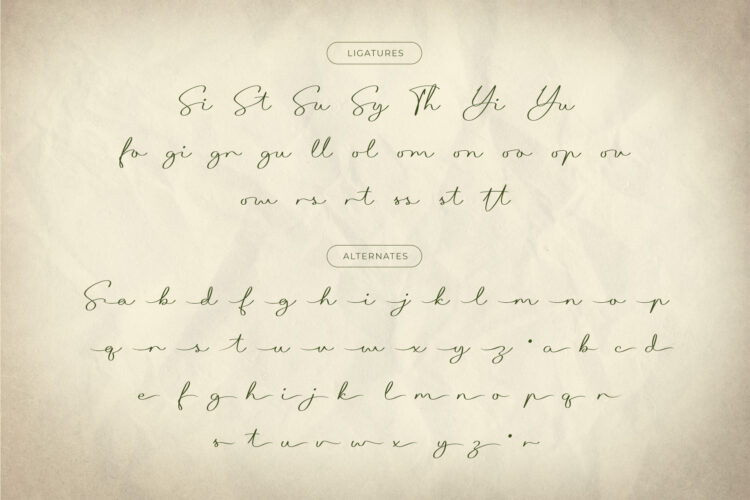 LIGATURES
Si St Su Sy Th Yi Yu
fo gi gr gu ll ol om on oo op ov
ow rs rt ss st tt
ALTERNATES
S a b d f g h i j k l m n o p
q r s t u v w x y z • a b c d
e f g h i j k l m n o p q r
s t u v w x y z • r